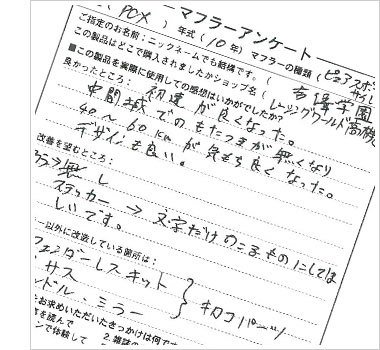 PCX マフラーアンケート
ご指定のお名前：ニックネームでも結構です。（
） 年式（10年） マフラーの種類（ピュアスポ
この製品はどこで購入されましたかショップ名（レーシングワールド高槻
■この製品を実際に使用しての感想はいかがでしたか
良かったところ： 初速が良くなった。
中間域でのもたつきが無くなり
40〜60kmが気もち良くなった。
デザインも良い。
改善を望むところ：
無し
ステッカー→文字だけのこるものにしてほ
しいです。
ー以外に改造している箇所は：
フェンダーレスキット
サス
ンドル、ミラー
キタコパーツ
お求めいただいたきっかけは何です
を読んで 2.雑誌の
ンで体験して